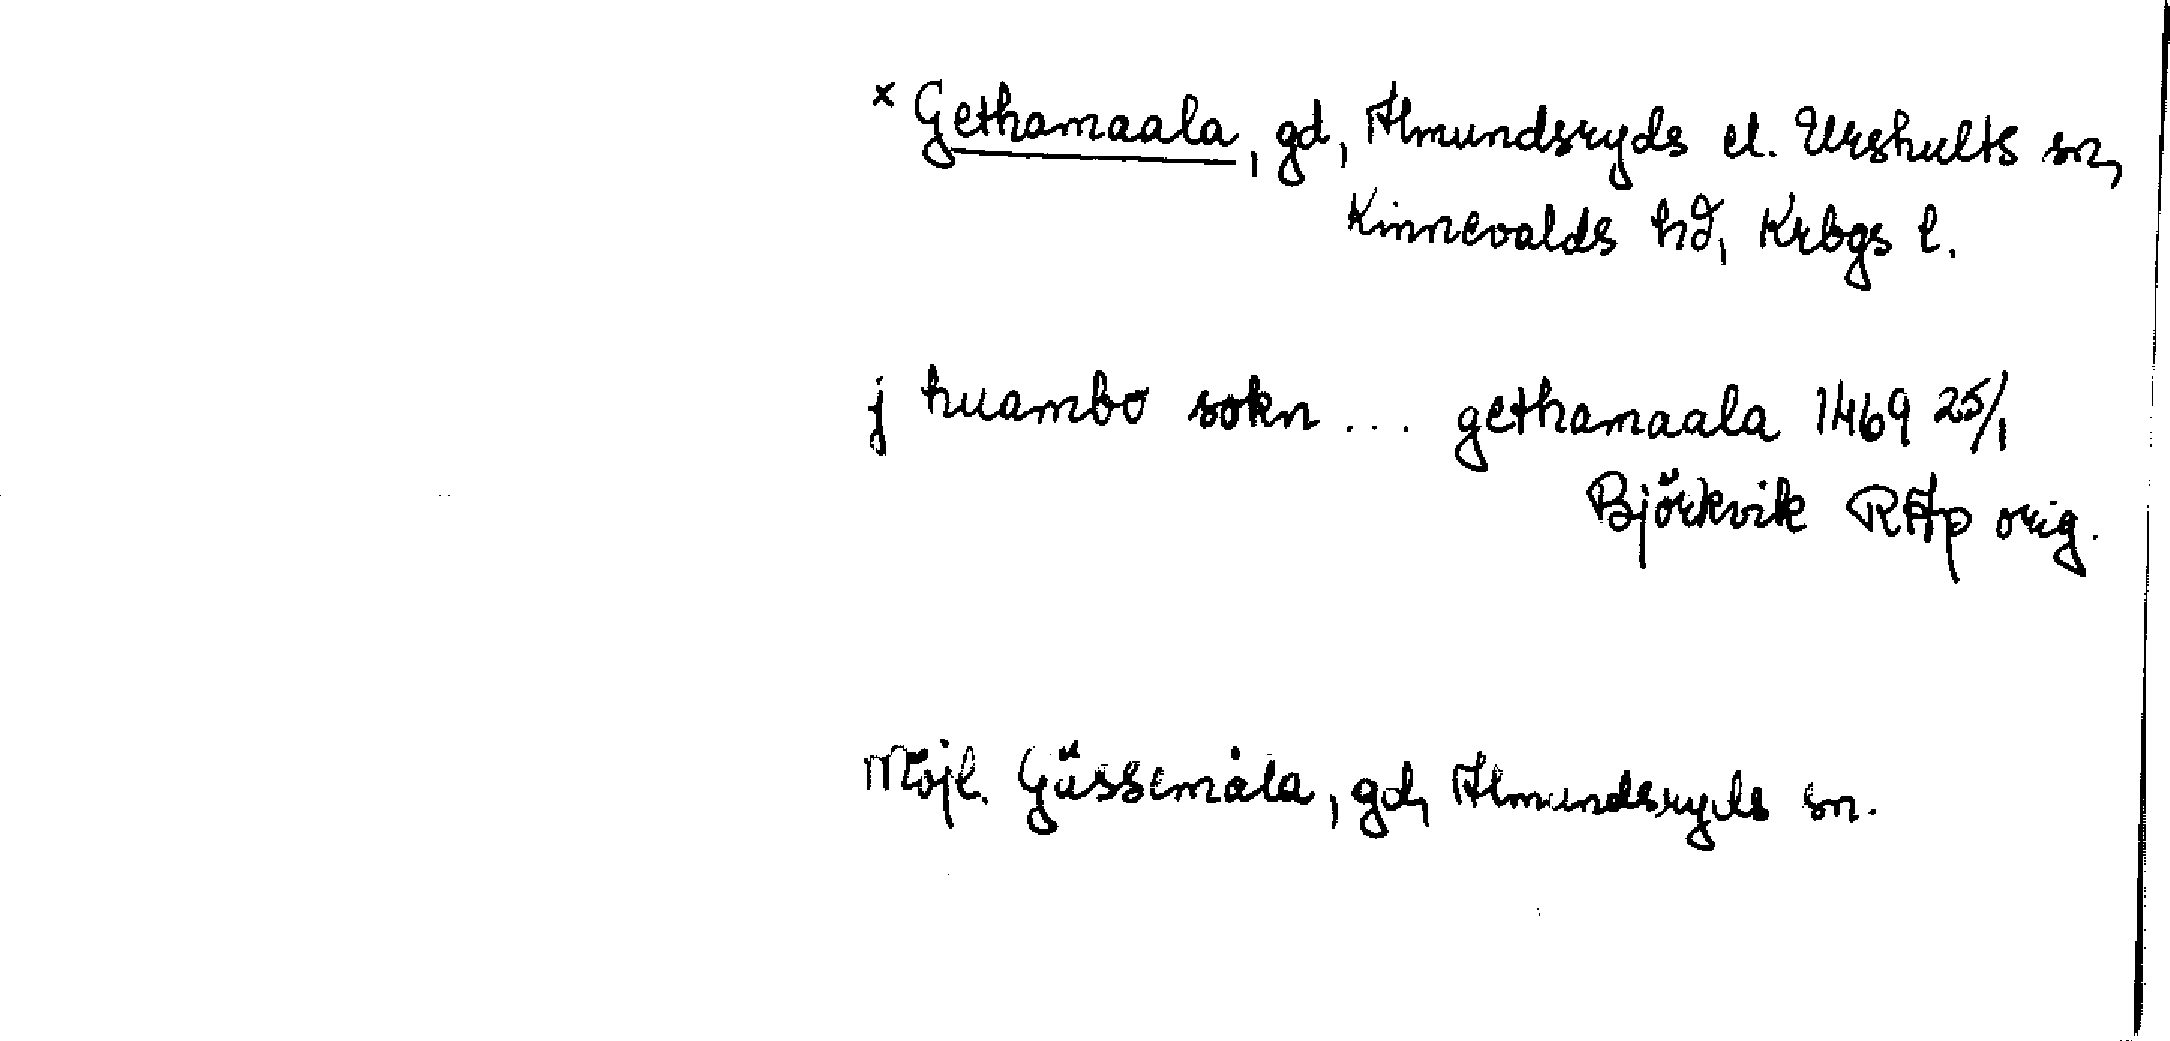 × Gethamaala, gd, Almundsryds el. Urshults sn,
Kinnevalds hd, Krbgs l.
j huambo sokn ... gethamaala 1469 25/1
Björkvik RAp orig.
Möjl. Gässemåla, gd, Almundsryds sn.